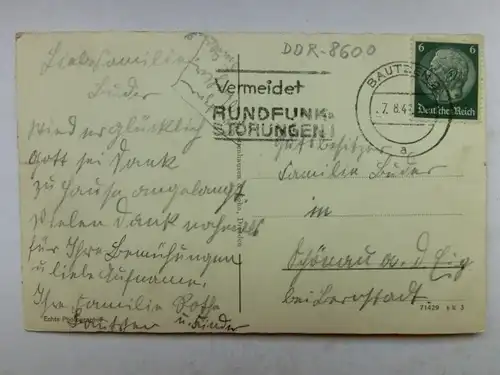 DDR-8600
Liebe Familie
Buder
Sind er glücklich
Gott sei Dank
zu Hause angelangt
Vielen Dank nochmals
für Ihre Bemühungen
u. liebe Aufnahme.
Ihre Familie Rothe
Bautzen u. Kinder
Echte Photographie
Vermeidet
RUNDFUNK-
STÖRUNGEN!
BAUTZEN
7.8.4
a
6 6
Deutsches Reich
Gutsbesitzer
Familie Buder
in
Schönau a. d. Eig
bei Bernstadt
Dresden
71429